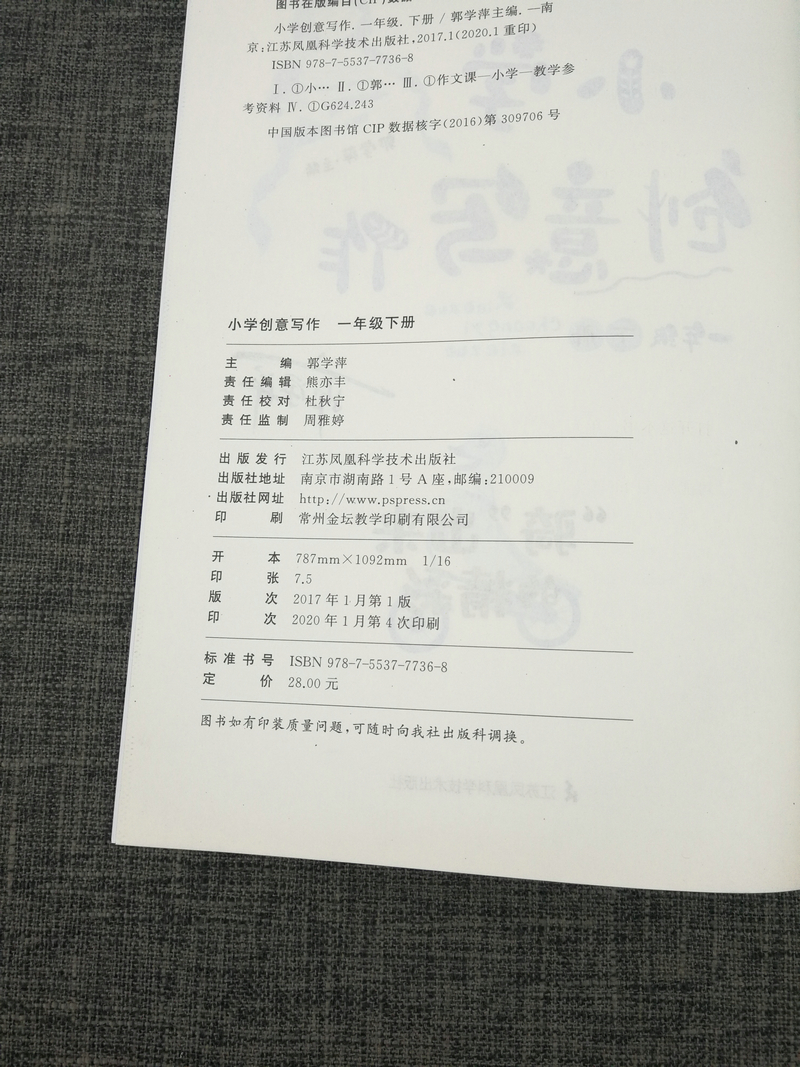 图书在版编目(CIP)数据
小学创意写作. 一年级. 下册 / 郭学萍主编. —南
京:江苏凤凰科学技术出版社,2017.1(2020.1 重印)
ISBN 978-7-5537-7736-8
Ⅰ. ①小… Ⅱ. ①郭… Ⅲ. ①作文课—小学—教学参
考资料 Ⅳ. ①G624.243
中国版本图书馆 CIP 数据核字(2016)第 309706 号
小学创意写作 一年级下册
主 编 郭学萍
责任编辑 熊亦丰
责任校对 杜秋宁
责任监制 周雅婷
出版发行 江苏凤凰科学技术出版社
出版社地址 南京市湖南路 1 号 A 座,邮编:210009
出版社网址 http://www.pspress.cn
印 刷 常州金坛教学印刷有限公司
开 本 787mm×1092mm 1/16
印 张 7.5
版 次 2017 年 1 月第 1 版
印 次 2020 年 1 月第 4 次印刷
标准书号 ISBN 978-7-5537-7736-8
定 价 28.00 元
图书如有印装质量问题,可随时向我社出版科调换。